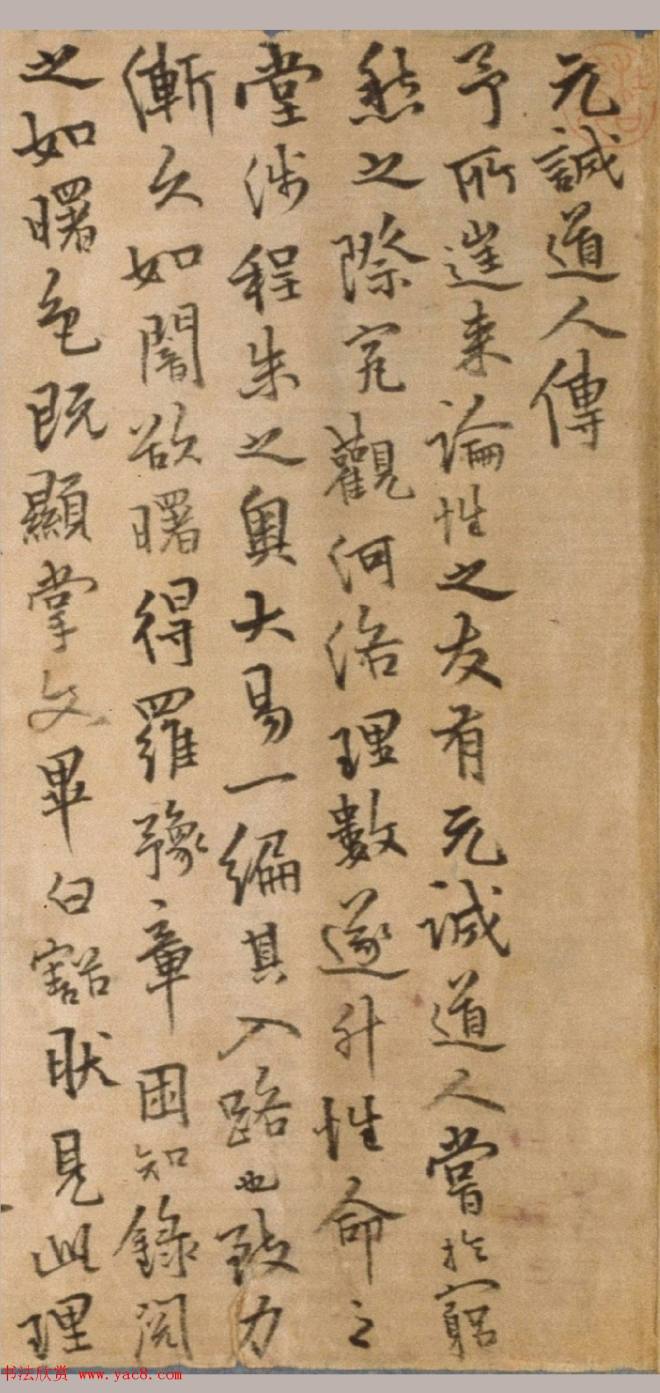 元誠道人傳
予所遑来論性之友有元誠道人嘗於窮
愁之際究觀河洛理數遂升性命之
堂涉程朱之奥大易一編其入路也致力
漸久如闇欲曙得羅豫章困知錄閲
之如曙色既顯掌文畢白豁狀見此理
书法欣赏 www.yac8.com